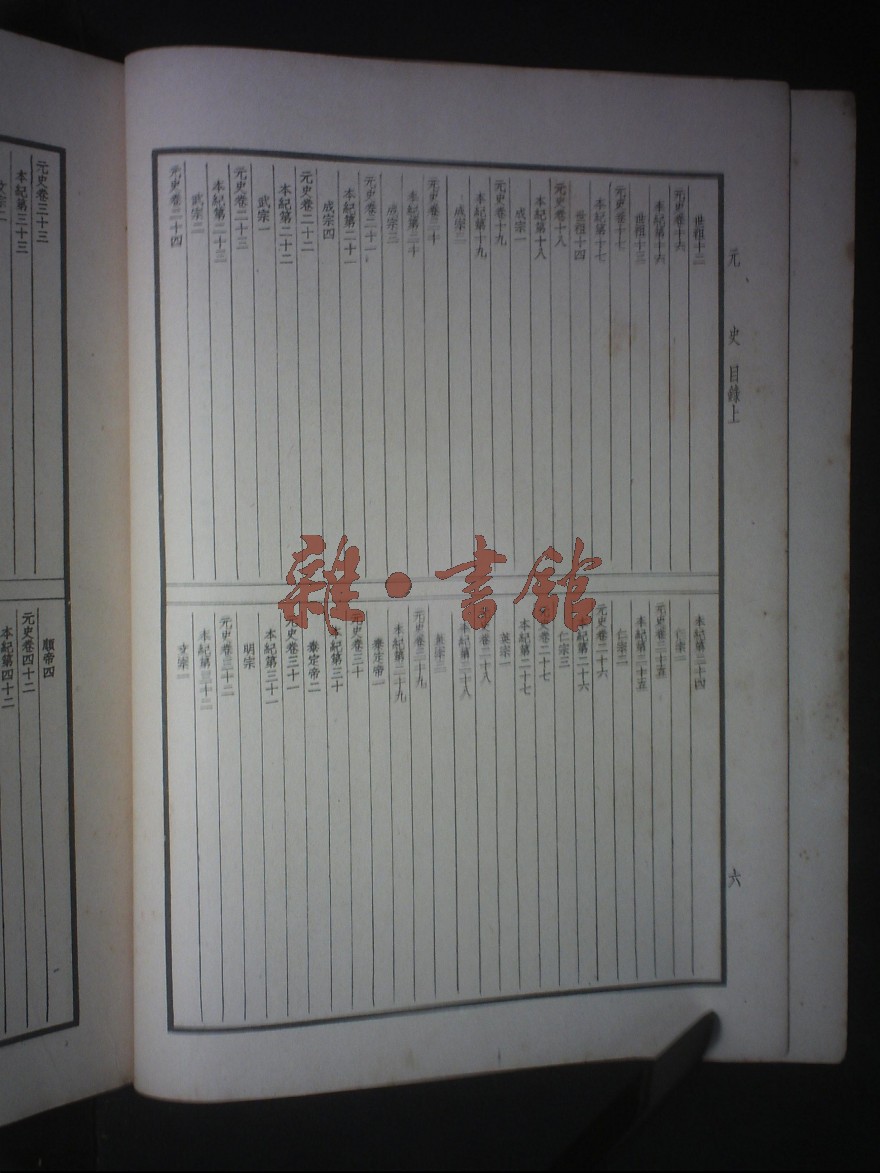 元史 目錄上 六
世祖十二
元史卷十六
本紀第十六
世祖十三
元史卷十七
本紀第十七
世祖十四
元史卷十八
本紀第十八
成宗一
元史卷十九
本紀第十九
成宗二
元史卷二十
本紀第二十
成宗三
元史卷二十一
本紀第二十一
成宗四
元史卷二十二
本紀第二十二
武宗一
元史卷二十三
本紀第二十三
武宗二
元史卷二十四
本紀第二十四
仁宗一
元史卷二十五
本紀第二十五
仁宗二
元史卷二十六
本紀第二十六
仁宗三
元史卷二十七
本紀第二十七
英宗一
元史卷二十八
本紀第二十八
英宗二
元史卷二十九
本紀第二十九
泰定帝一
元史卷三十
本紀第三十
泰定帝二
元史卷三十一
本紀第三十一
明宗
元史卷三十二
本紀第三十二
文宗一
元史卷三十三
本紀第三十三
文宗二
順帝四
元史卷四十二
本紀第四十二
雜·書館